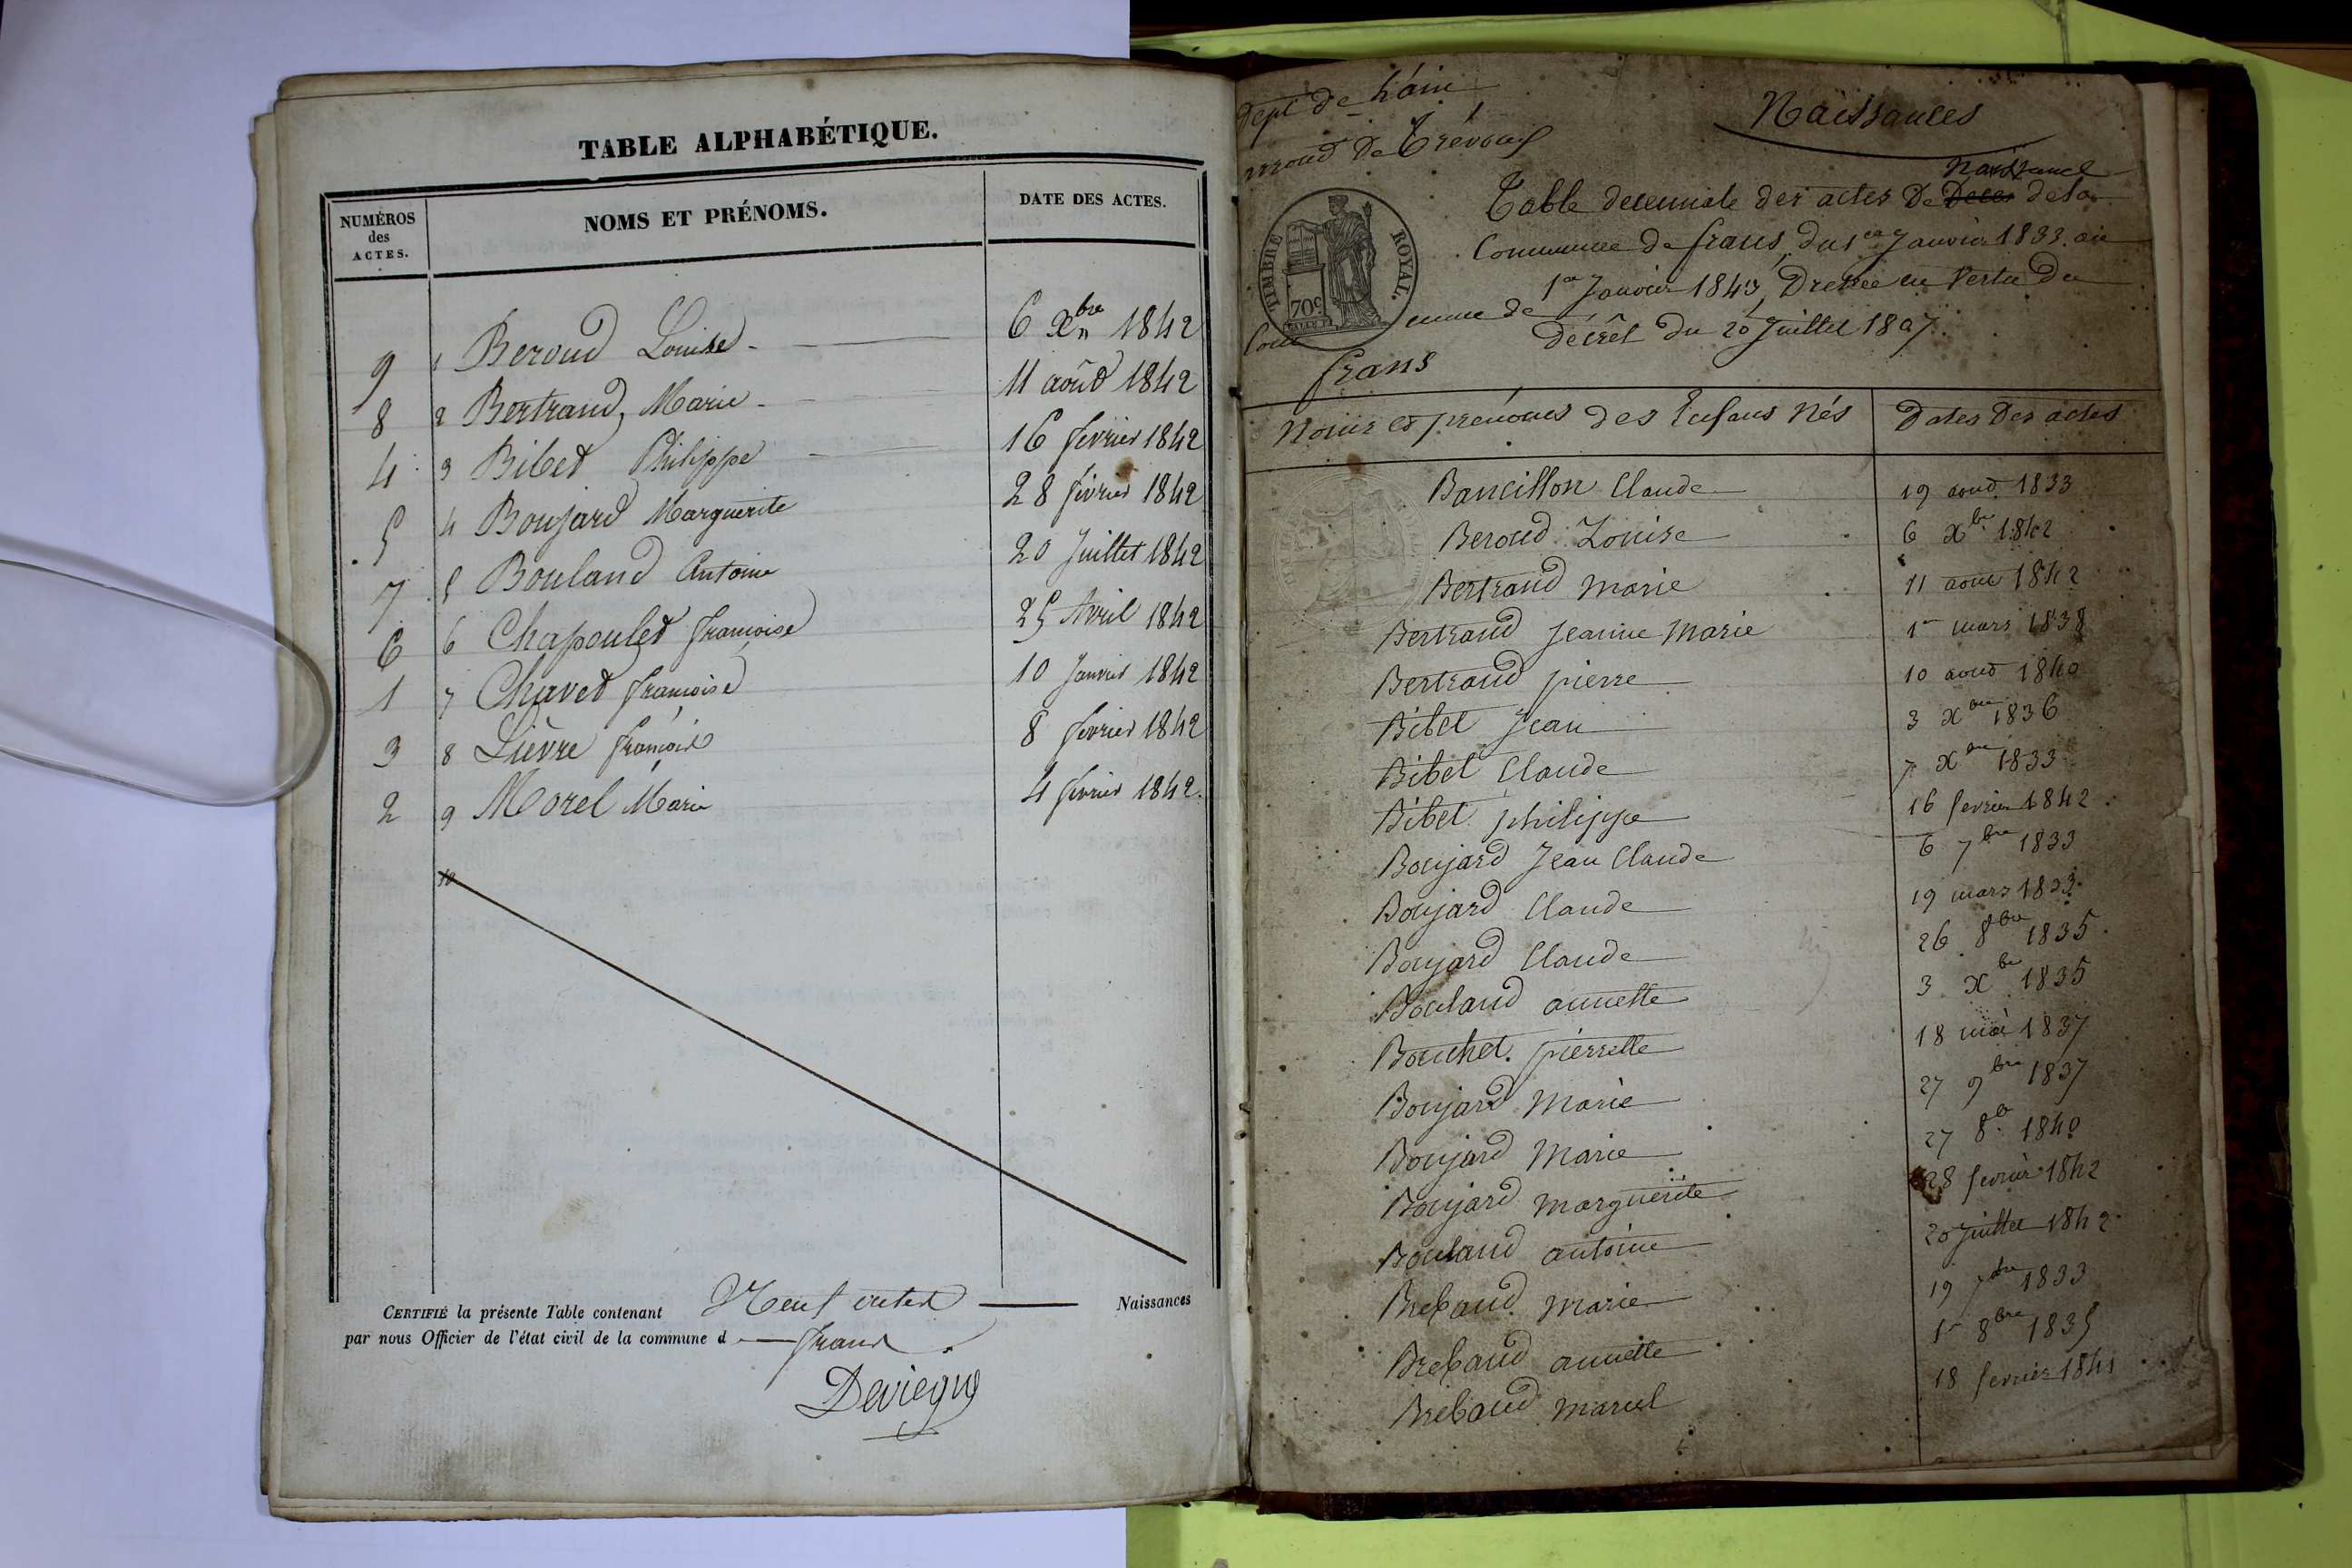 TABLE ALPHABÉTIQUE.
NUMÉROS
des
ACTES.
NOMS ET PRÉNOMS.
DATE DES ACTES.
9 1 Beroud Louise 6 Xbre 1842
8 2 Bertrand, Marie 11 août 1842
4 3 Bibet Philippe 16 fevrier 1842
5 4 Boujard Marguerite 28 février 1842
7 5 Bouland Antoine 20 Juillet 1842
6 6 Chapoulet françoise 25 Avril 1842
1 7 Chavet françoise 10 Janvier 1842
3 8 Lièvre françois 8 fevrier 1842
2 9 Morel Marie 4 fevrier 1842.
10
CERTIFIÉ la présente Table contenant Neuf actes Naissances
par nous Officier de l'état civil de la commune d frans
Dept de L'ain
arrond De Trévoux
TIMBRE ROYAL.
70c
Commune de
frans
Naissances
Naissance
Table decennale des actes De Deces de la
Commune de frans, du 1er Janvier 1833. au
1er Janvier 1843, Dressée en Vertu Du
Décrêt du 20 Juillet 1807.
Noms et prénoms des Enfans Nés Dates Des actes
Bancillon Claude 19 aout 1833
Beroud Louise 6 Xbre 1842
Bertrand Marie 11 aout 1842
Bertrand Jeanne Marie 1er mars 1838
Bertrand pierre 10 aout 1840
Bibet Jean 3 Xbre 1836
Bibet Claude 7 Xbre 1833
Bibet philippe 16 fevrier 1842
Boujard Jean Claude 6 7bre 1833
Boujard Claude 19 mars 1833
Boujard Claude 26 8bre 1835.
Bouland annette 3 Xbre 1835
Bouchet pierrette 18 mai 1837
Boujard Marie 27 9bre 1837
Boujard Marie 27 8bre 1840
Boujard Marguerite 28 fevrier 1842
Bouland antoine 20 Juillet 1842
Brebaud Marie 19 7bre 1833
Brebaud annette 1er 8bre 1835
Brebaud Marcel 18 fevrier 1841